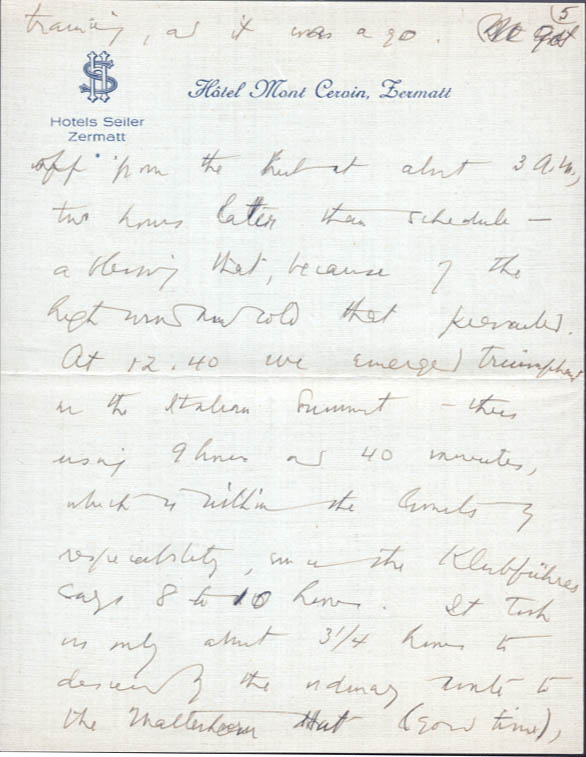 5
training, as it was a go. We got
HS
Hotels Seiler
Zermatt
Hôtel Mont Cervin, Zermatt
off from the hut at about 3 A.M.,
two hours later than schedule —
a blessing that, because of the
high wind and cold that prevailed.
At 12.40 we emerged triumphant
on the Italian Summit — thus
using 9 hours and 40 minutes,
which is within the limits of
respectability, since the Klubführer
says 8 to 10 hours. It took
us only about 3 1/4 hours to
descend by the ordinary route to
the Matterhorn Hut (good time),